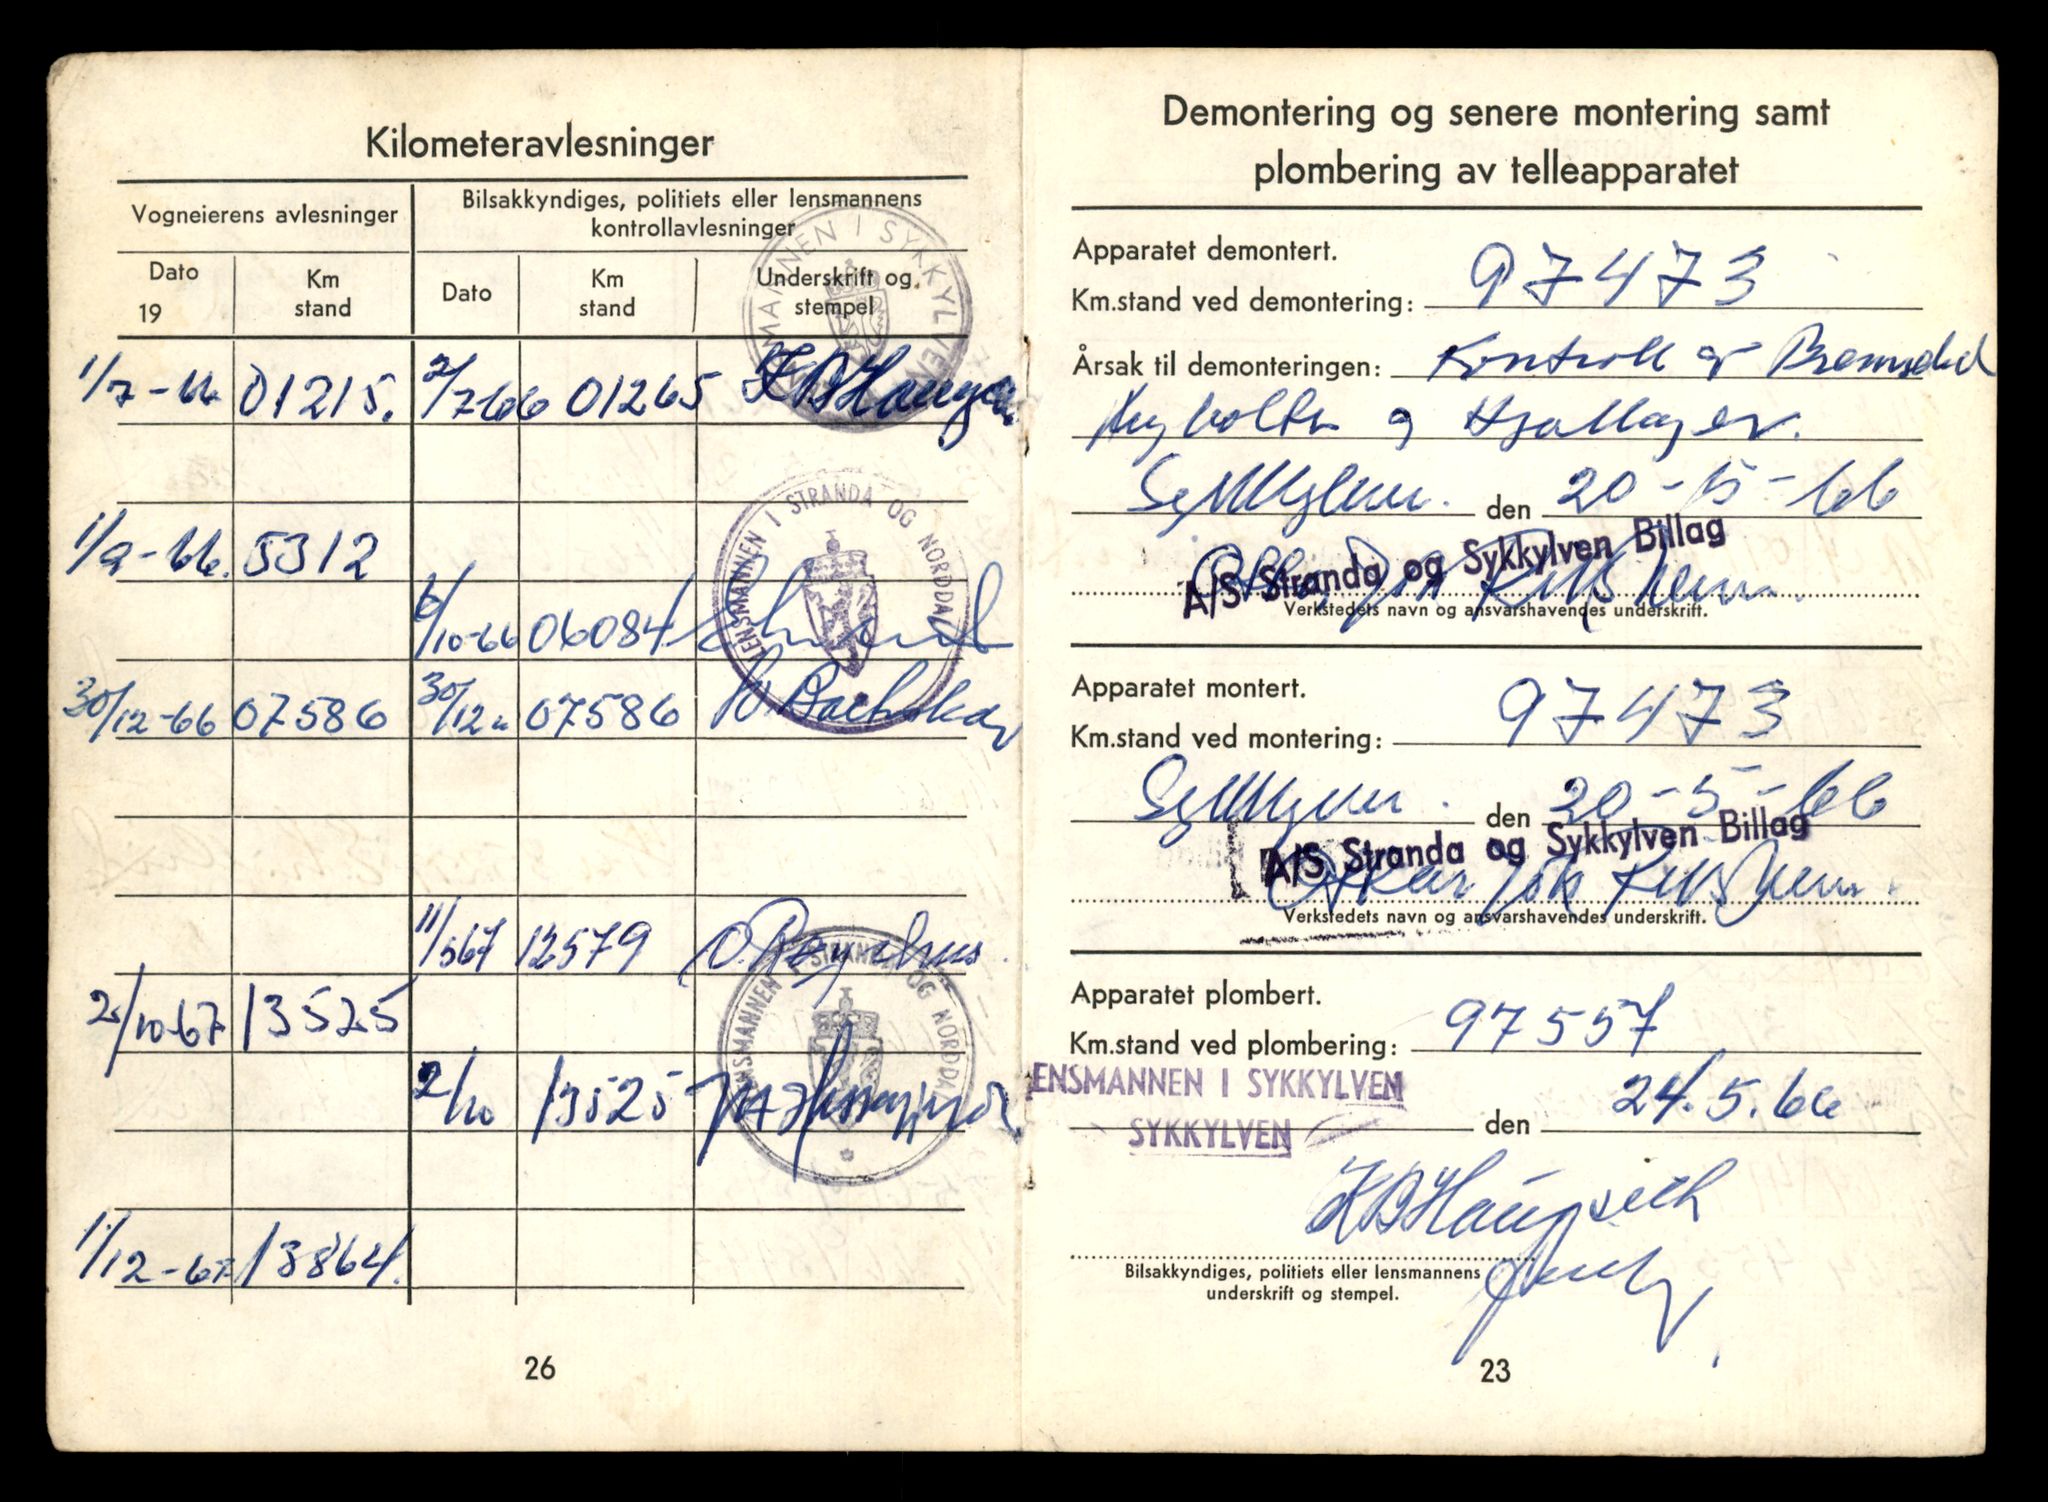 Kilometeravlesninger
Vogneierens avlesninger
Bilsakkyndiges, politiets eller lensmannens
kontrollavlesninger
Dato
19
Km
stand
Dato
Km
stand
Underskrift og
stempel
LENSMANNEN I SYKKYLVEN
1/7-66 01215. 2/7-66 01265
1/9-66. 5312
LENSMANNEN I STRANDA OG NORDDAL
6/10-66 06084
30/12-66 07586 30/12 " 07586
11/567 12579
2/10-67 13525
LENSMANNEN I STRANDA OG NORDDAL
2/10 13525
1/12-67 13864.
26
Demontering og senere montering samt
plombering av telleapparatet
Apparatet demontert.
Km.stand ved demontering: 97473
Årsak til demonteringen: Kontroll og
og Hjullager.
Sykkylven. den 20-5-66
A/S Stranda og Sykkylven Billag
Verkstedets navn og ansvarshavendes underskrift.
Apparatet montert.
Km.stand ved montering: 97473
Sykkylven. den 20-5-66
A/S Stranda og Sykkylven Billag
Verkstedets navn og ansvarshavendes underskrift.
Apparatet plombert.
Km.stand ved plombering: 97557
LENSMANNEN I SYKKYLVEN
SYKKYLVEN
den 24.5.66
K B Haugseth
Bilsakkyndiges, politiets eller lensmannens
underskrift og stempel.
23